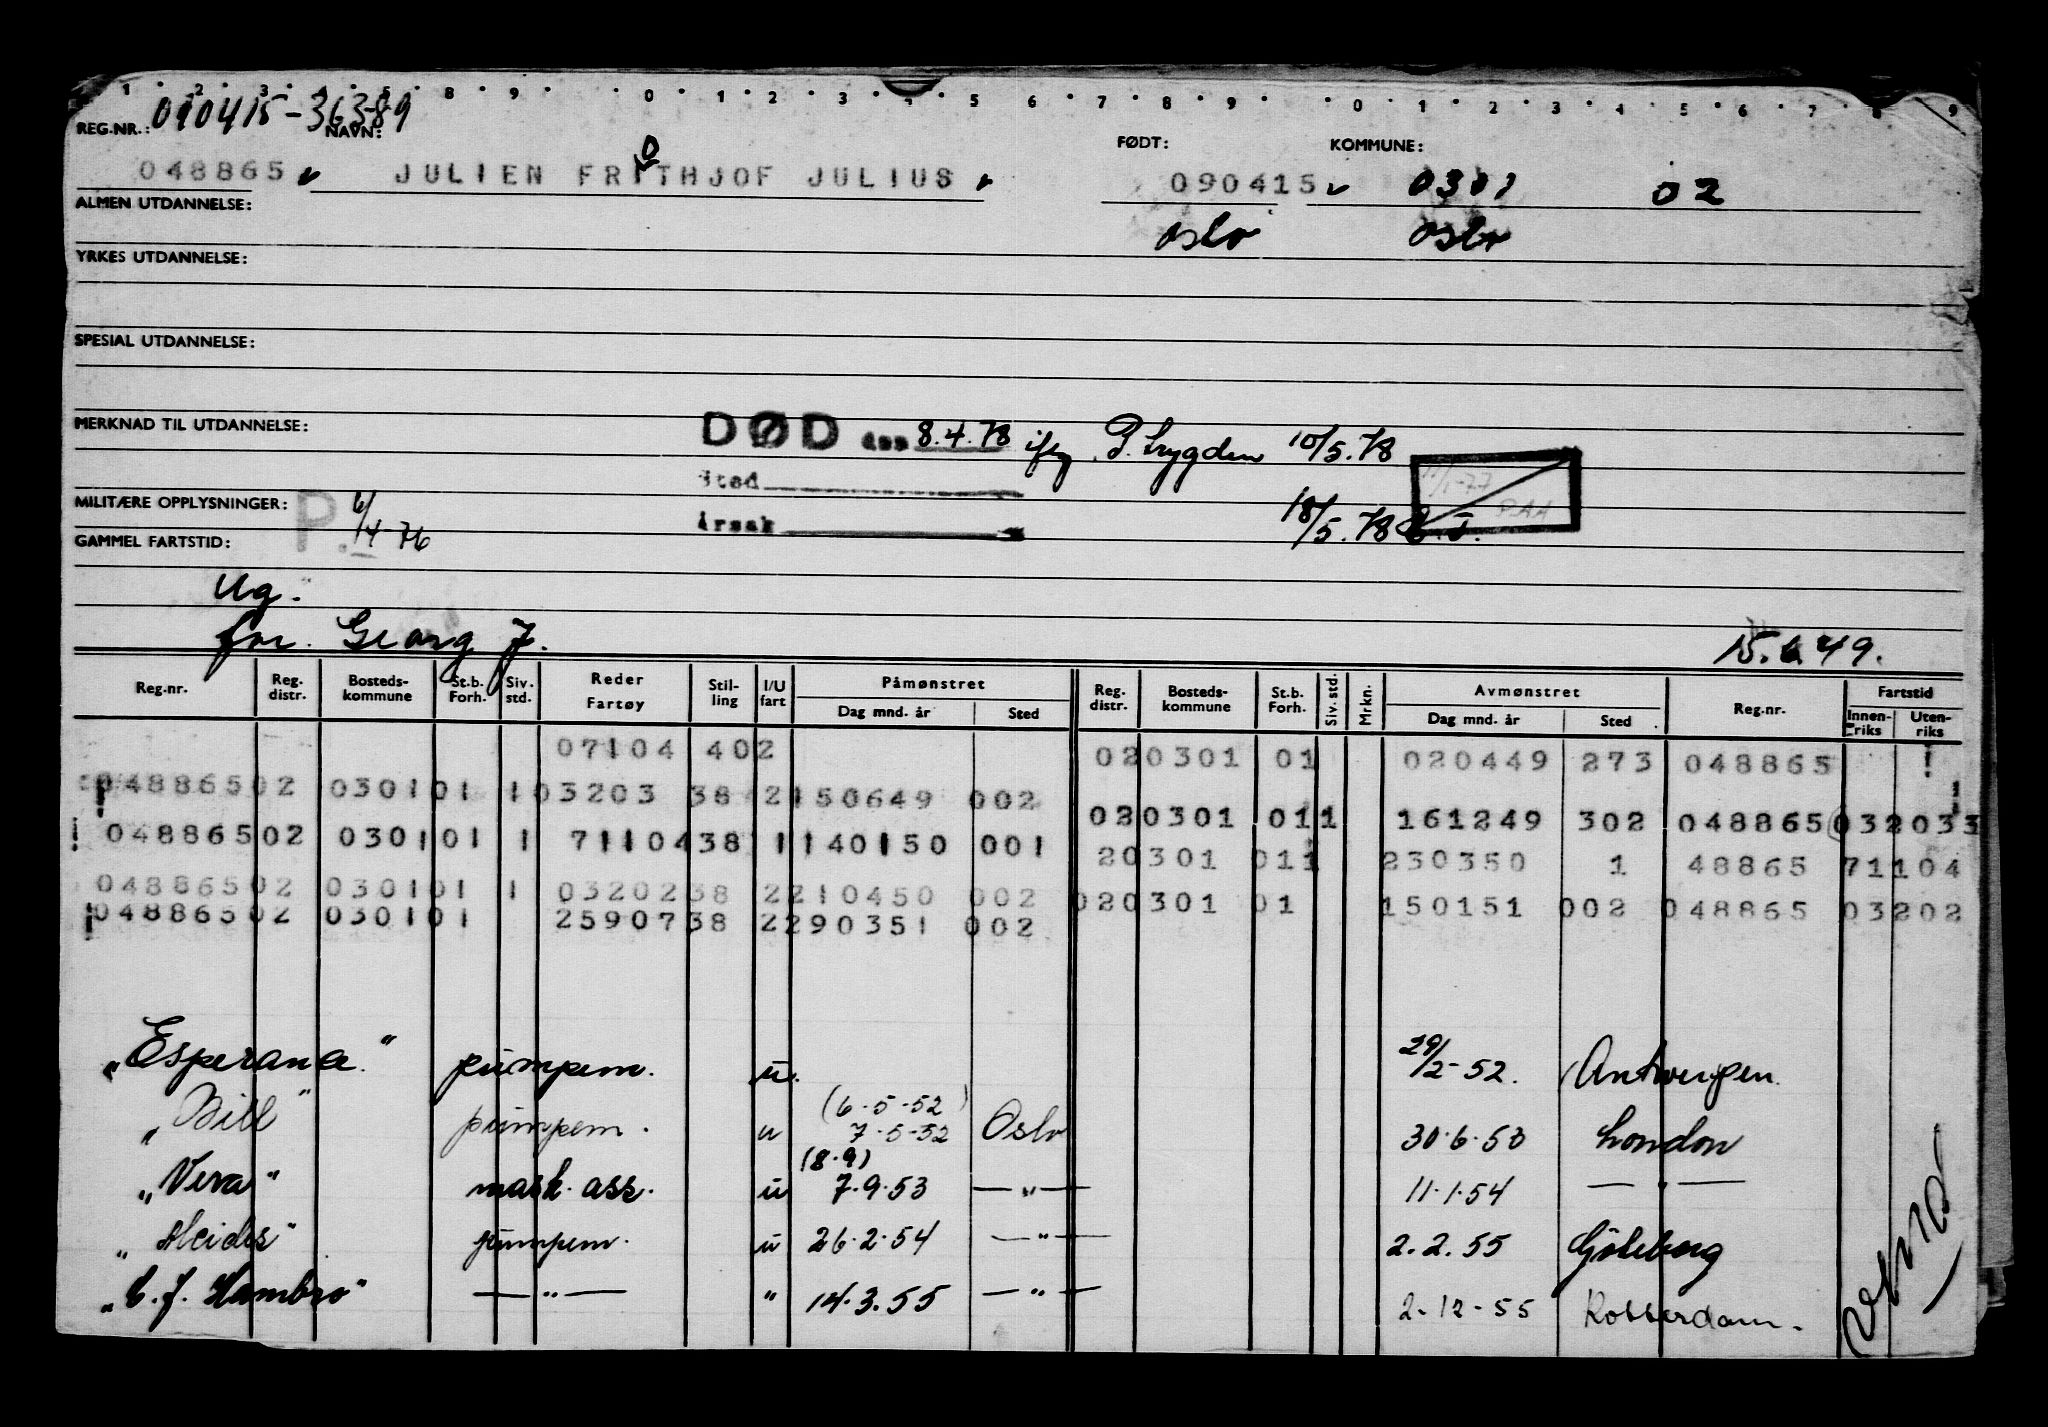 1 2 3 4 5 8 9 0 1 2 3 4 5 6 7 8 9 0 1 2 3 4 5 6 7 8 9
REG.NR.: 090415-36389 NAVN: FØDT: KOMMUNE:
048865 JULIEN FRITHJOF JULIUS 090415 0301 02
ALMEN UTDANNELSE: Oslo Oslo
YRKES UTDANNELSE:
SPESIAL UTDANNELSE:
MERKNAD TIL UTDANNELSE: DØD den 8.4.78 iflg P.trygden 10/5.78
Sted
MILITÆRE OPPLYSNINGER: P. 6/4-76 18/5.78
Årsak
GAMMEL FARTSTID:
Ug.
for. Georg J. 15.6 49.
Reg.nr. Reg. distr. Bosteds-kommune St.b. Forh. Siv. std. Reder Fartøy Stil-ling I/U fart Påmønstret Dag mnd. år Sted Reg. distr. Bosteds-kommune St.b. Forh. Siv. std. Mrkn. Avmønstret Dag mnd. år Sted Reg.nr. Fartstid Innen-riks Uten-riks
07104 402 020301 01 020449 273 048865
04886502 030101 103203 38 2150649 002
020301 011 161249 302 048865 032033
04886502 030101 1 7110438 1140150 001
20301 011 230350 1 48865 71104
04886502 030101 1 0320238 2210450 002
020301 01 150151 002 048865 03202
04886502 030101 2590738 2290351 002
„Esperance" pumpem. u. 29/2-52. Antwerpen.
(6.5-52)
„Bill" pumpem. u 7.5-52 Oslo 30.6.53 London
(8.9)
„Vera" mask. ass. u 7.9.53 —"— 11.1.54 —"—
pumpem. u 26.2.54 —"— 2.2.55 Göteborg
„C. J. Hambro" —"— " 14.3.55 —"— 2-12-55 Rotterdam.